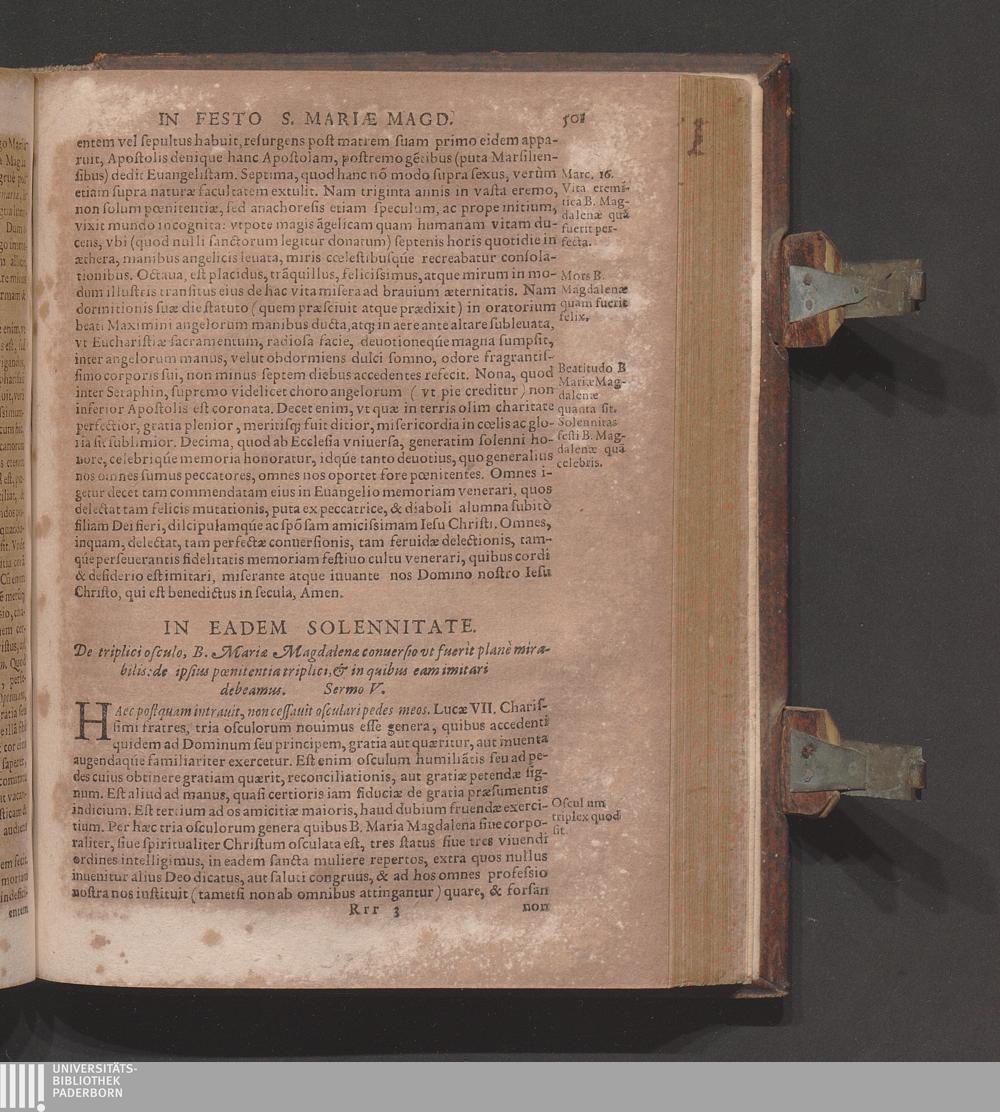 IN FESTO S. MARIÆ MAGD. 501
entem vel ſepultus habuit, reſurgens poſt matrem ſuam primo eidem appa-
ruit, Apoſtolis denique hanc Apoſtolam, poſtremo gẽtibus (puta Marſilien-
ſibus) dedit Euangeliſtam. Septima, quod hanc nõ modo ſupra ſexus, verùm
etiam ſupra naturæ facultatem extulit. Nam triginta annis in vaſta eremo,
non ſolum pœnitentiæ, ſed anachoreſis etiam ſpeculum, ac prope initium,
vixit mundo incognita: vtpote magis ãgelicam quam humanam vitam du-
cens, vbi (quod nulli ſanctorum legitur donatum) ſeptenis horis quotidie in
æthera, manibus angelicis leuata, miris cœleſtibuſque recreabatur conſola-
tionibus. Octaua, eſt placidus, trãquillus, feliciſsimus, atque mirum in mo-
dum illuſtris tranſitus eius de hac vita miſera ad brauium æternitatis. Nam
dormitionis ſuæ die ſtatuto (quem præſciuit atque prædixit) in oratorium
beati Maximini angelorum manibus ducta, atq; in aere ante altare ſubleuata,
vt Euchariſtiæ ſacramentum, radioſa facie, deuotioneque magna ſumpſit,
inter angelorum manus, velut obdormiens dulci ſomno, odore fragrantiſ-
ſimo corporis ſui, non minus ſeptem diebus accedentes refecit. Nona, quod
inter Seraphin, ſupremo videlicet choro angelorum (vt pie creditur) non
inferior Apoſtolis eſt coronata. Decet enim, vt quæ in terris olim charitate
perfectior, gratia plenior, meritiſq; fuit ditior, miſericordia in cœlis ac glo-
ria ſit ſublimior. Decima, quod ab Eccleſia vniuerſa, generatim ſolenni ho-
nore, celebriqúe memoria honoratur, idqúe tanto deuotius, quo generalius
nos omnes ſumus peccatores, omnes nos oportet fore pœnitentes. Omnes i-
getur decet tam commendatam eius in Euangelio memoriam venerari, quos
delectat tam felicis mutationis, puta ex peccatrice, & diaboli alumna ſubitò
filiam Dei fieri, diſcipulamqúe ac ſpõſam amiciſsimam Ieſu Chriſti. Omnes,
inquam, delectat, tam perfectæ conuerſionis, tam feruidæ delectionis, tam-
qúe perſeuerantis fidelitatis memoriam feſtiuo cultu venerari, quibus cordi
& deſiderio eſt imitari, miſerante atque iuuante nos Domino noſtro Ieſu
Chriſto, qui eſt benedictus in ſecula, Amen.
Marc. 16.
Vita eremi-
tica B. Mag-
dalenæ quã
fuerit per-
fecta.
Mors B.
Magdalenæ
quam fuerit
felix.
Beatitudo B
Mariæ Mag-
dalenæ
quanta ſit.
Solennitas
feſti B. Mag-
dalenæ quã
celebris.
IN EADEM SOLENNITATE.
De triplici oſculo, B. Mariæ Magdalenæ conuerſio vt fuerit planè mira-
bilis: de ipſius pœnitentia triplici, & in quibus eam imitari
debeamus. Sermo V.
HAec poſtquam intrauit, non ceſſauit oſculari pedes meos. Lucæ VII. Chariſ-
ſimi fratres, tria oſculorum nouimus eſſe genera, quibus accedenti
quidem ad Dominum ſeu principem, gratia aut quæritur, aut inuenta
augendaque familiariter exercetur. Eſt enim oſculum humiliãtis ſeu ad pe-
des cuius obtinere gratiam quærit, reconciliationis, aut gratiæ petendæ ſig-
num. Eſt aliud ad manus, quaſi certioris iam fiduciæ de gratia præſumentis
indicium. Eſt tertium ad os amicitiæ maioris, haud dubium fruendæ exerci-
tium. Per hæc tria oſculorum genera quibus B. Maria Magdalena ſiue corpo-
raliter, ſiue ſpiritualiter Chriſtum oſculata eſt, tres ſtatus ſiue tres viuendi
ordines intelligimus, in eadem ſancta muliere repertos, extra quos nullus
inuenitur alius Deo dicatus, aut ſaluti congruus, & ad hos omnes profeſsio
noſtra nos inſtituit (tametſi non ab omnibus attingantur) quare, & forſan
Oſculum
triplex quod
ſit.
Rrr 3 non
UNIVERSITÄTS-
BIBLIOTHEK
PADERBORN